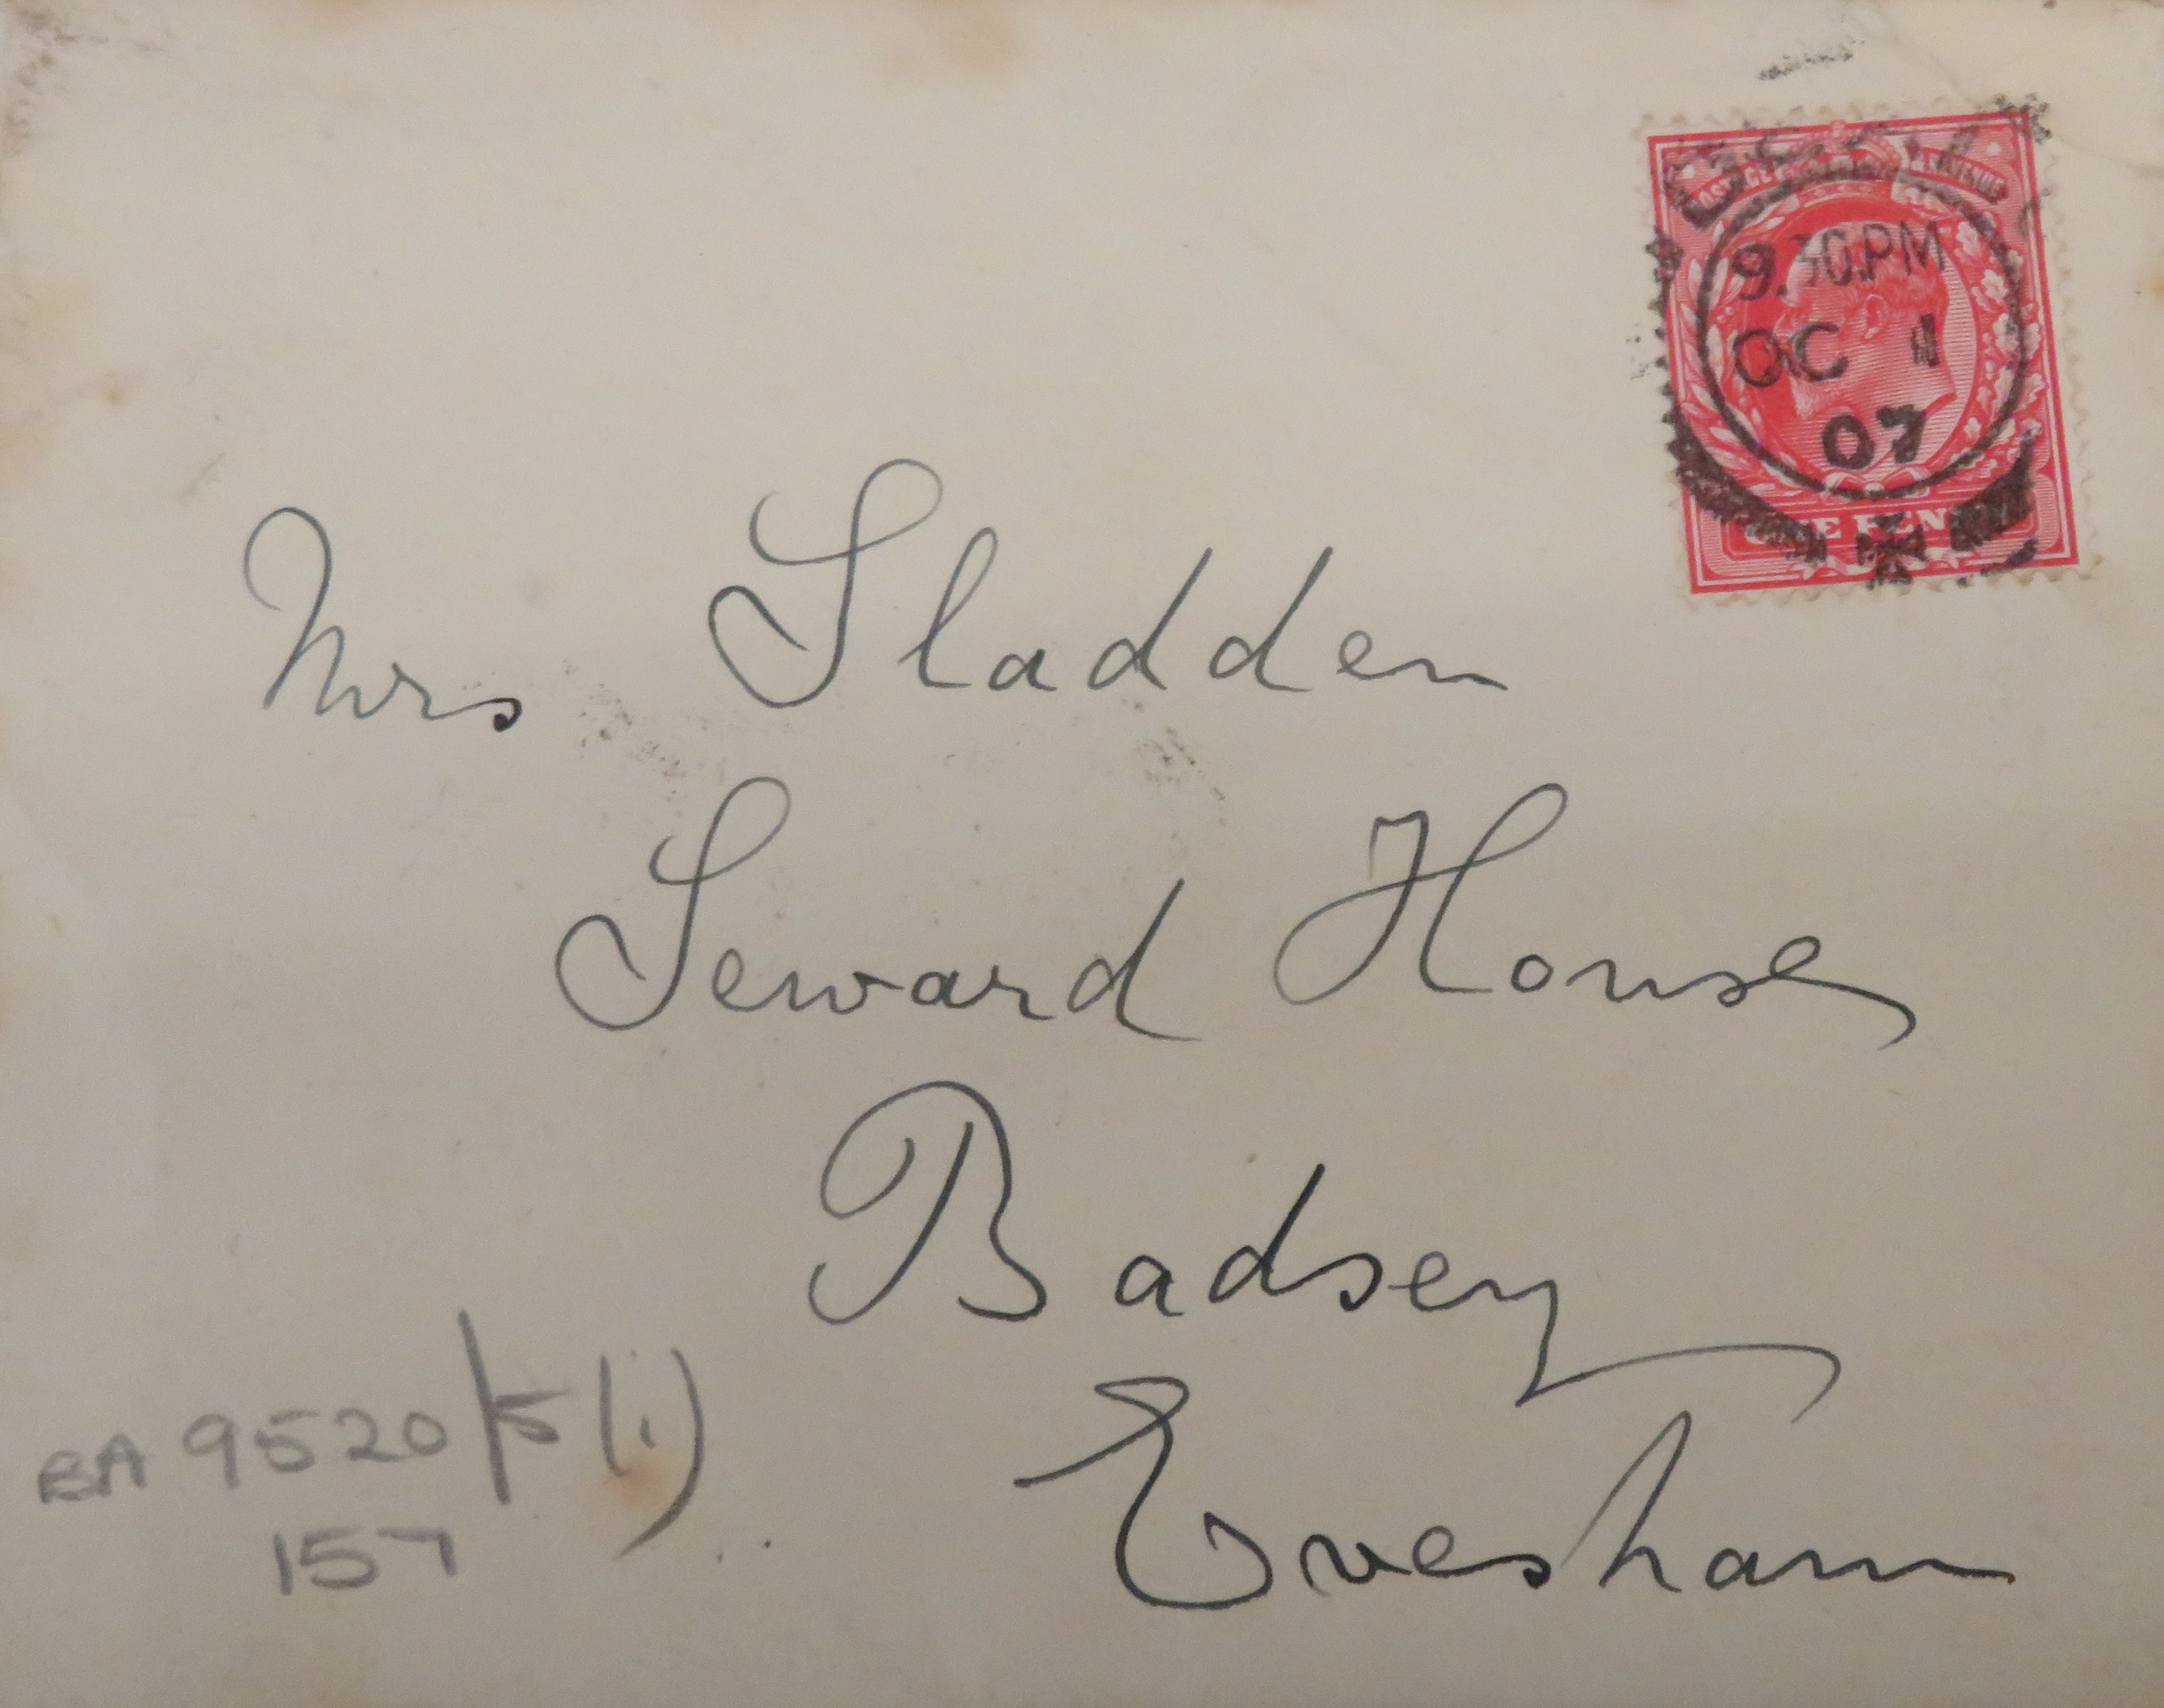 POSTAGE REVENUE
9.30PM
OC 1
07
ONE PENNY
Mrs Sladden
Seward House
Badsey
Evesham
BA 9520/5(i)
157